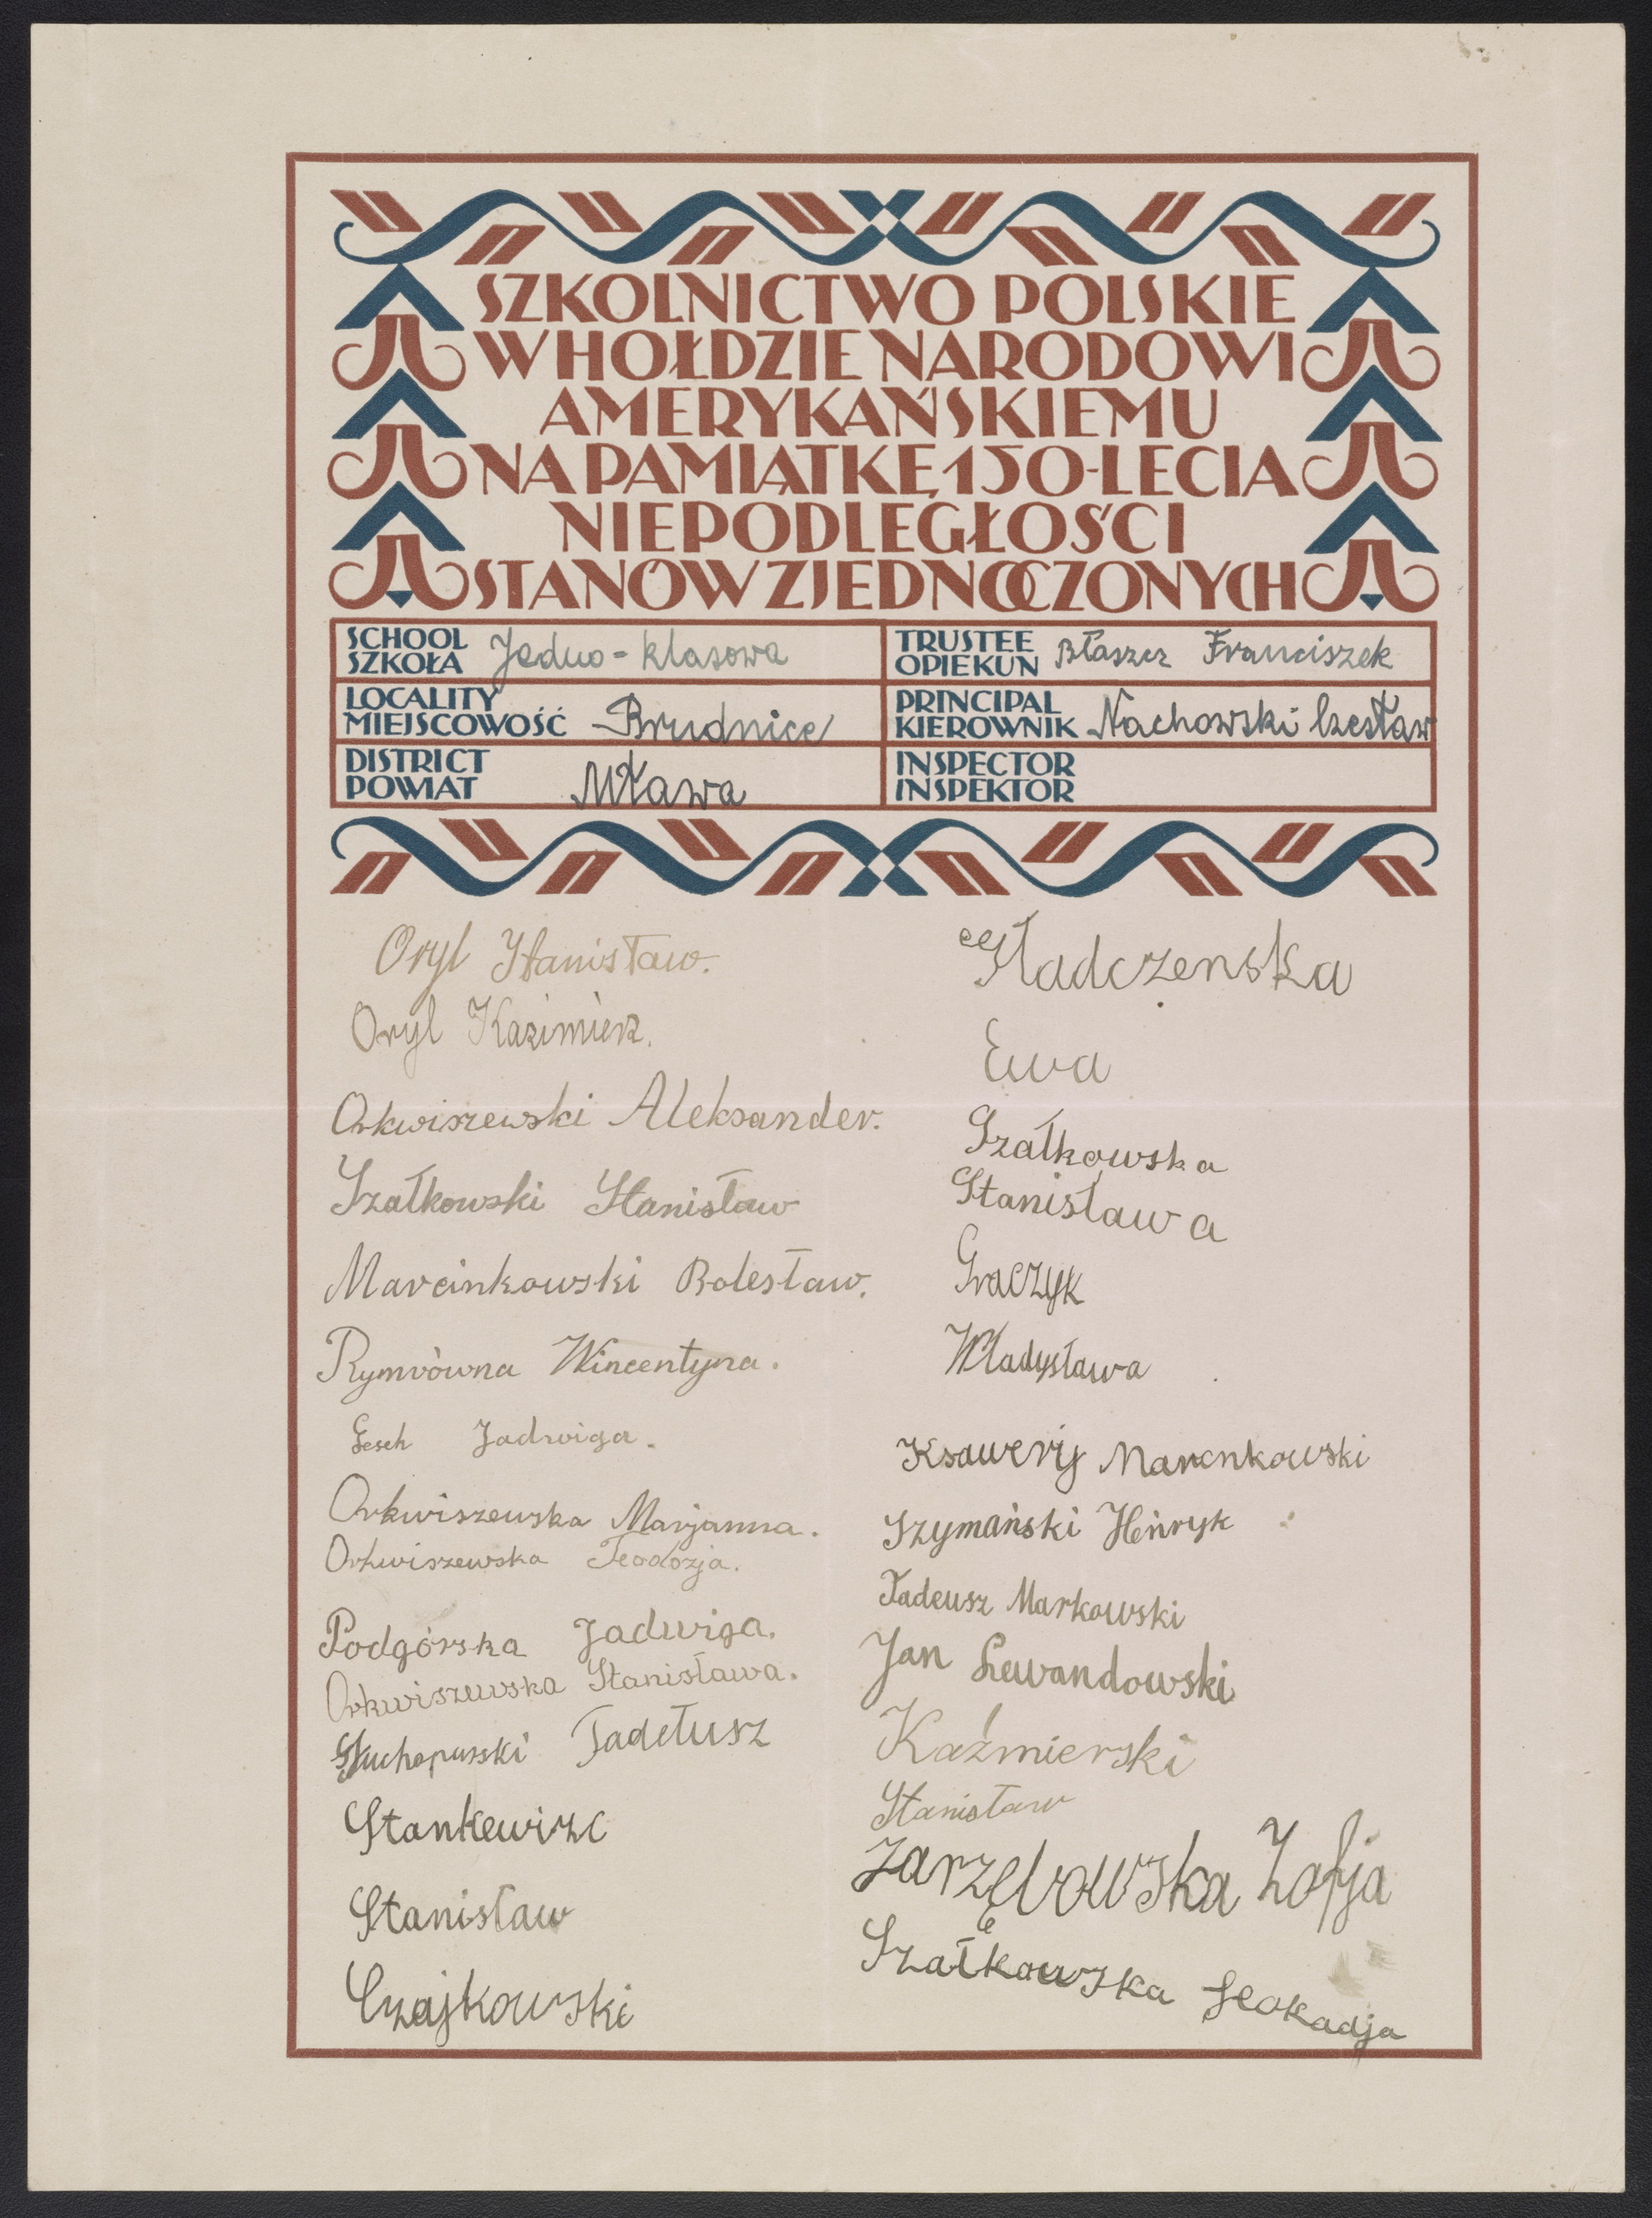 SZKOLNICTWO POLSKIE
W HOŁDZIE NARODOWI
AMERYKAŃSKIEMU
NA PAMIĄTKĘ 150-LECIA
NIEPODLEGŁOŚCI
STANÓW ZJEDNOCZONYCH
SCHOOL
SZKOŁA Jedno-klasowa
TRUSTEE
OPIEKUN Błaszcz Franciszek
LOCALITY
MIEJSCOWOŚĆ Brudnice
PRINCIPAL
KIEROWNIK Nachowski Czesław
DISTRICT
POWIAT Mława
INSPECTOR
INSPEKTOR
Oryl Stanisław.
Oryl Kazimierz.
Orkwiszewski Aleksander.
Szałkowski Stanisław
Marcinkowski Bolesław.
Rymrówna Wincentyna.
Jadwiga.
Orkwiszewska Marjanna.
Orkwiszewska Teodozja.
Podgórska Jadwiga.
Orkwiszewska Stanisława.
Tadełusz
Stankewizc
Stanisław
Czajkowski
Ewa
Szałkowska
Stanisława
Graczyk
Władysława
Ksawery Marcnkowski
Szymański Henryk
Tadeusz Markowski
Jan Lewandowski
Kaźmierski
Stanisław
Zofja
Szałkowska Leokadja